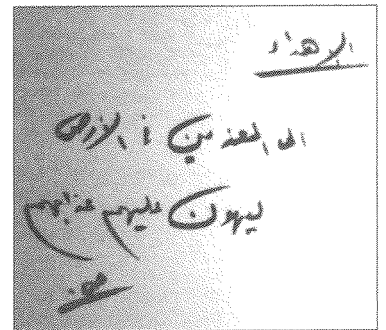 الإهداء
الى المعذبين في الأرض
ليهون عليهم عذابهم